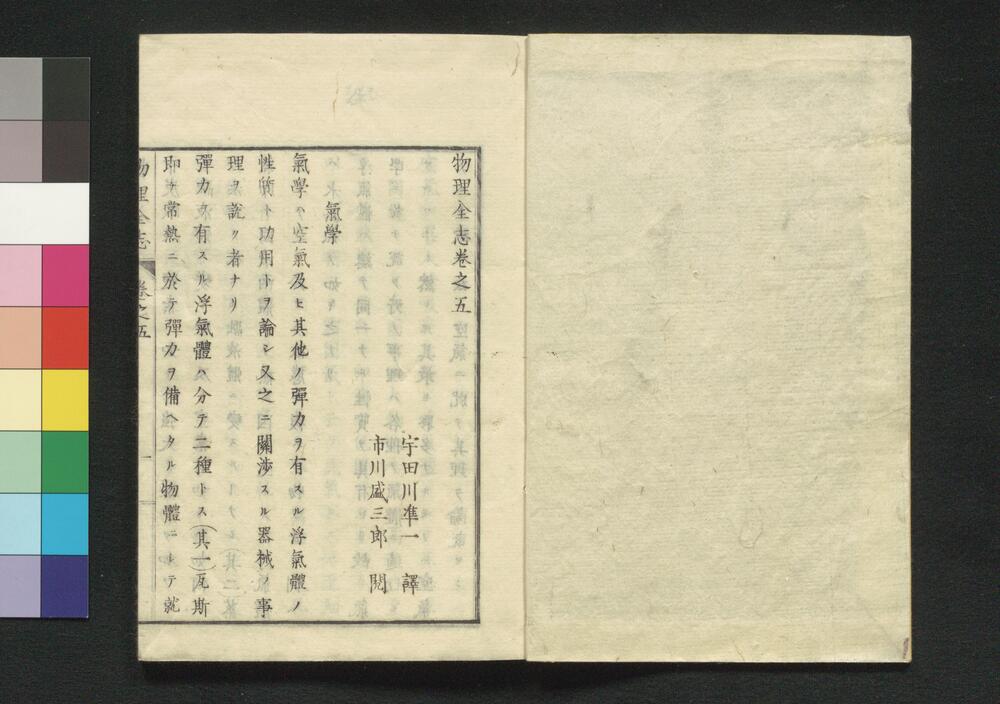 物理全志卷之五
宇田川準一 譯
市川盛三郎 閲
氣學
氣學ハ空氣及ヒ其他ノ彈力ヲ有スル浮氣體ノ
性質ト功用トヲ論シ又之ニ關渉スル器械ノ事
理ヲ説ク者ナリ
彈力ヲ有スル浮氣體ハ分テ二種トス(其一)瓦斯
即チ常熱ニ於テ彈力ヲ備ヘタル物體ニ〆テ就
物理全志 卷之五 一